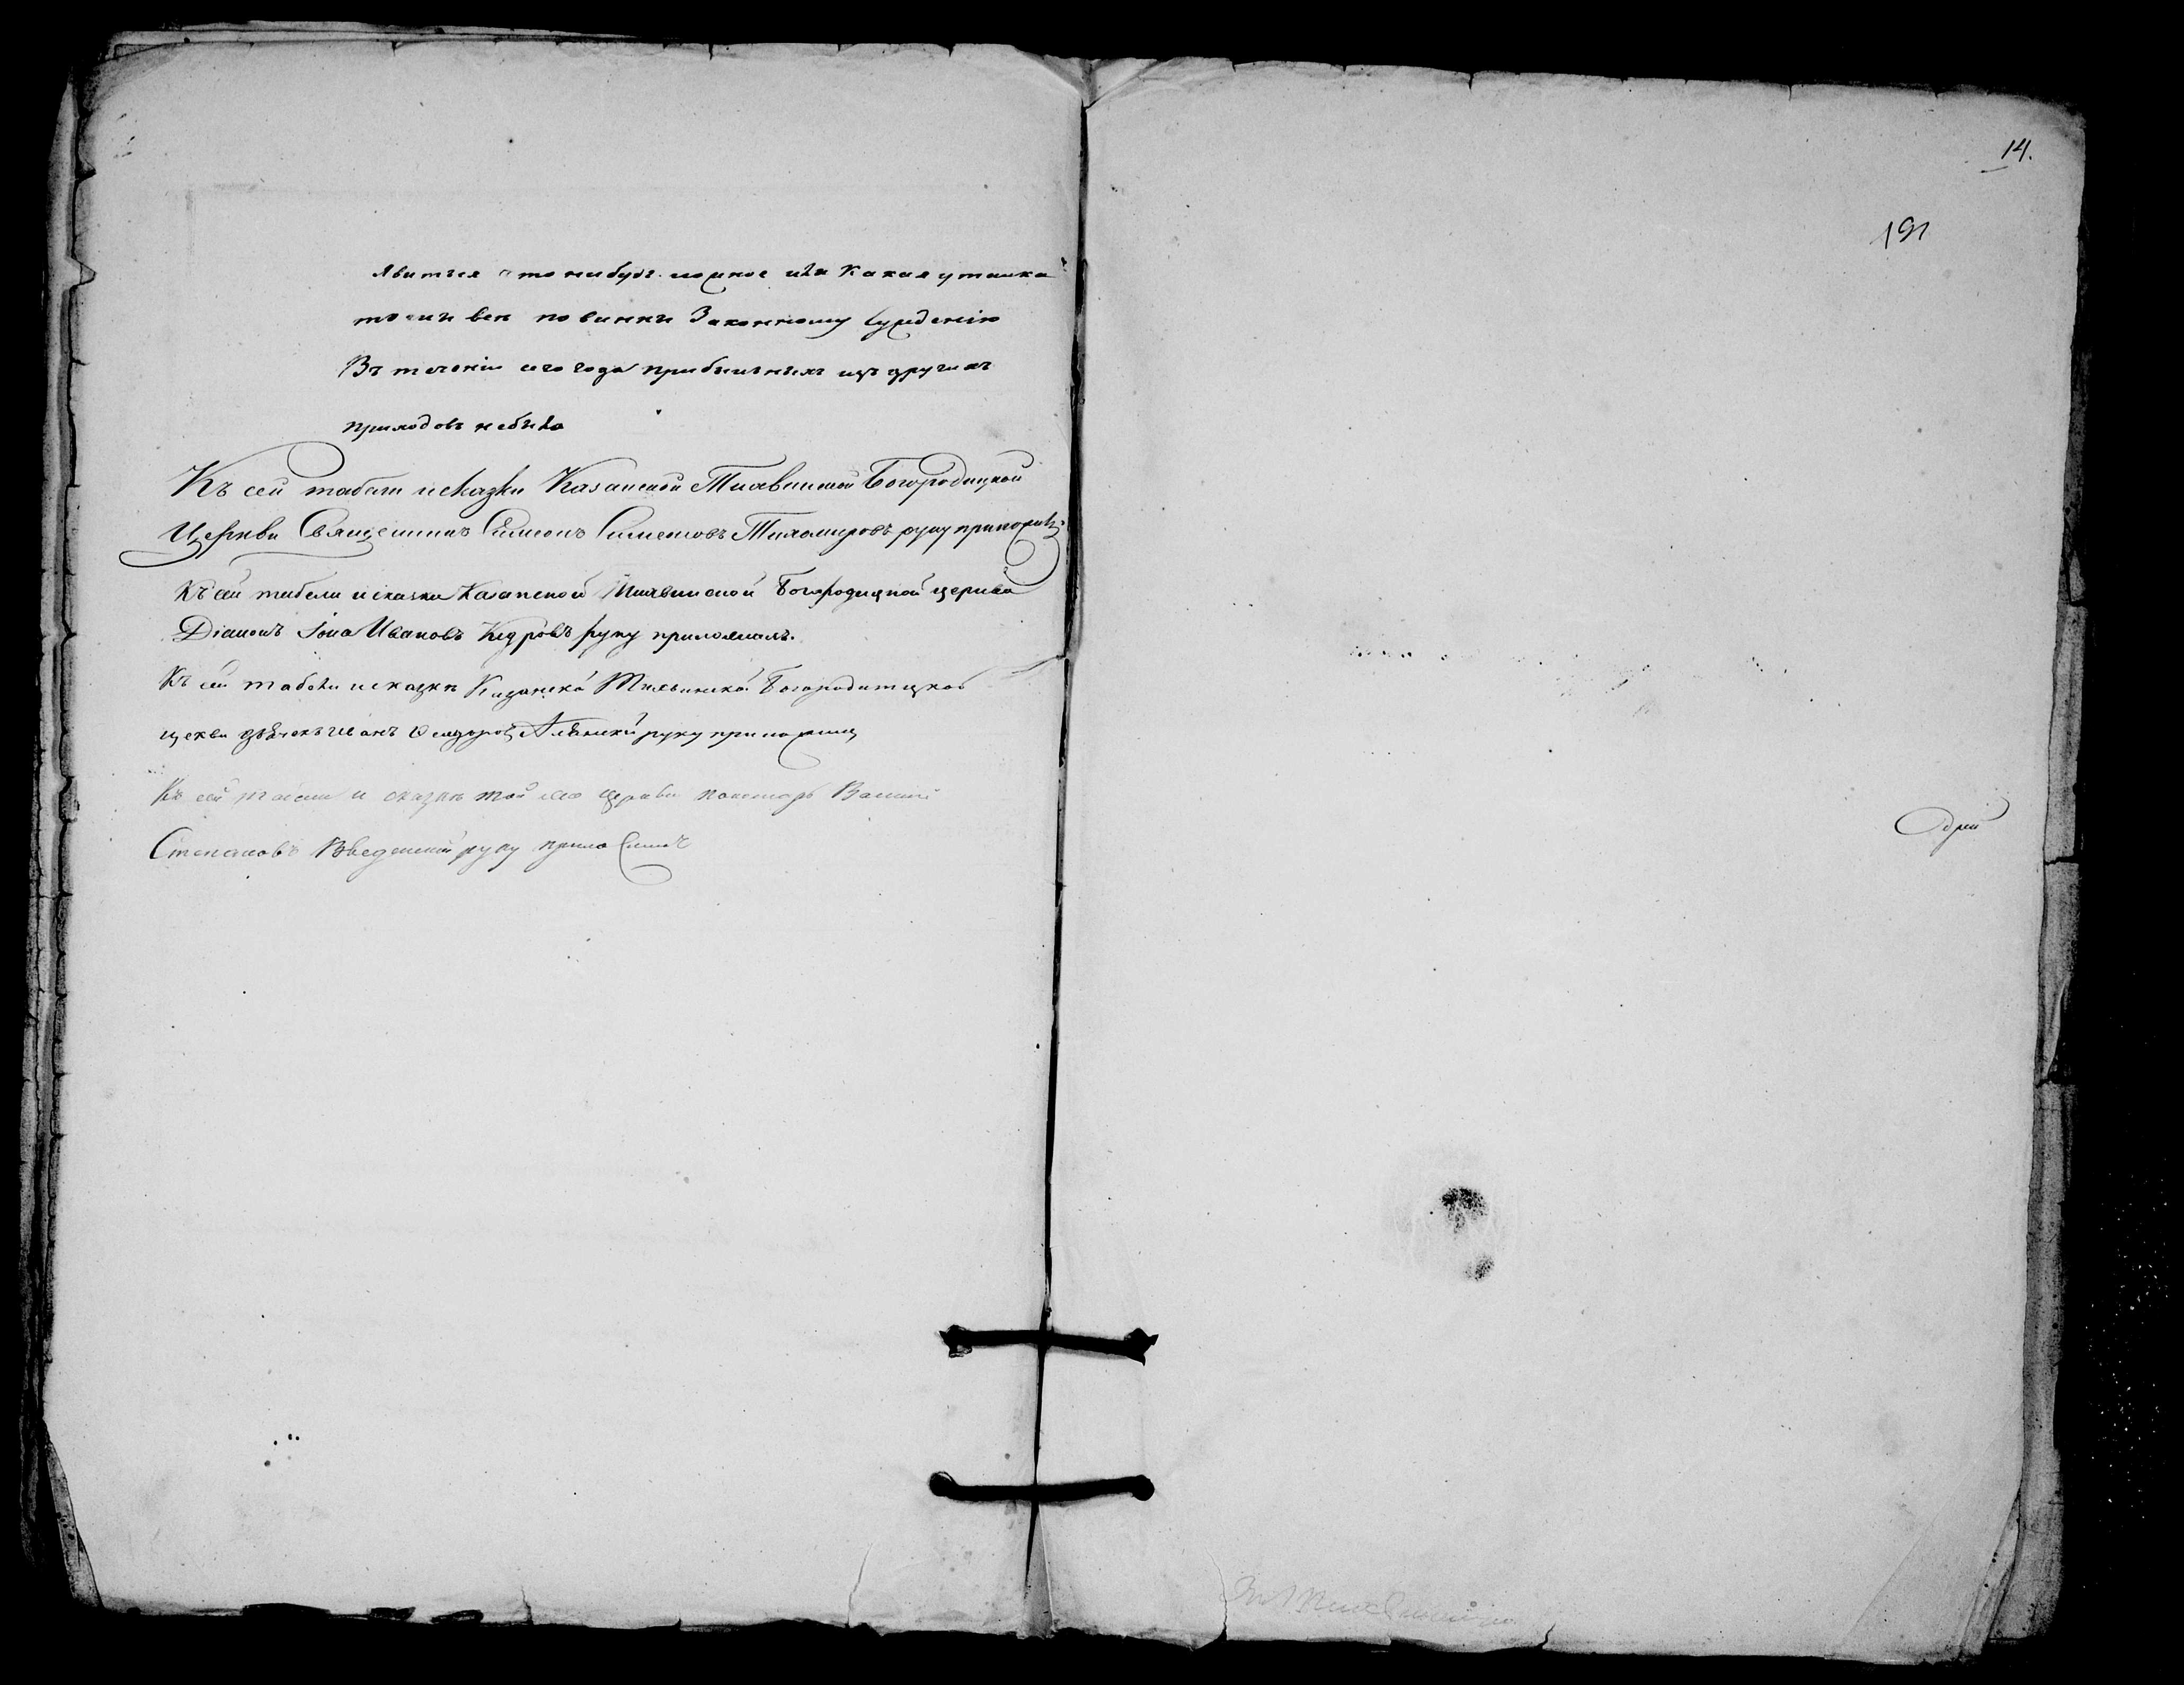 явится что нибудь ложное или какая утайка
то сим все повинны Законному сужденію
Въ теченіи сего года прибывшихъ изъ другихъ
приходовъ небыло
Къ сей табели и сказки Казанской Тихвинской Богородицкой
Церкви Священникъ Симеонъ Симеоновъ Тихомировъ руку приложилъ
Къ сей табели и сказки Казанской Тихвинской Богородицкой церкви
Діаконъ Іона Ивановъ Кедровъ руку приложилъ.
Къ сей табели и сказки Казанской Тихвинской Богородитцкой
цекви дьячекъ Иванъ руку приложилъ
Къ сей табели и сказкѣ той же церкви пономарь Василій
Степановъ Введенскій руку приложилъ
14.
191